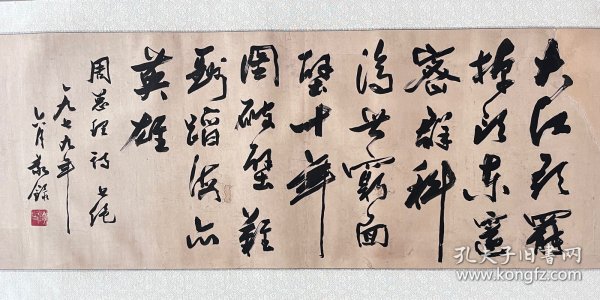 大江歌罷
掉头东邃
密群科
济世窮面
壁十年
圖破壁難
酬蹈海亦
英雄
周总理诗
一九七九年
月敬録
孔夫子旧书网
www.kongfz.com